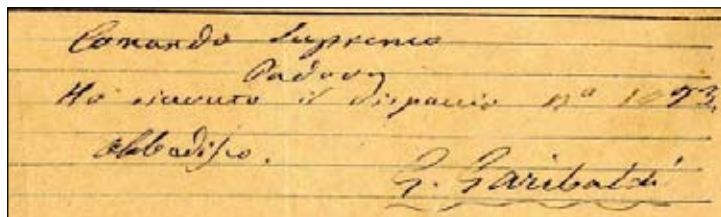 Comando Supremo
Padova
Ho ricevuto il dispaccio nº 1073.
Obbedisco.
G. Garibaldi